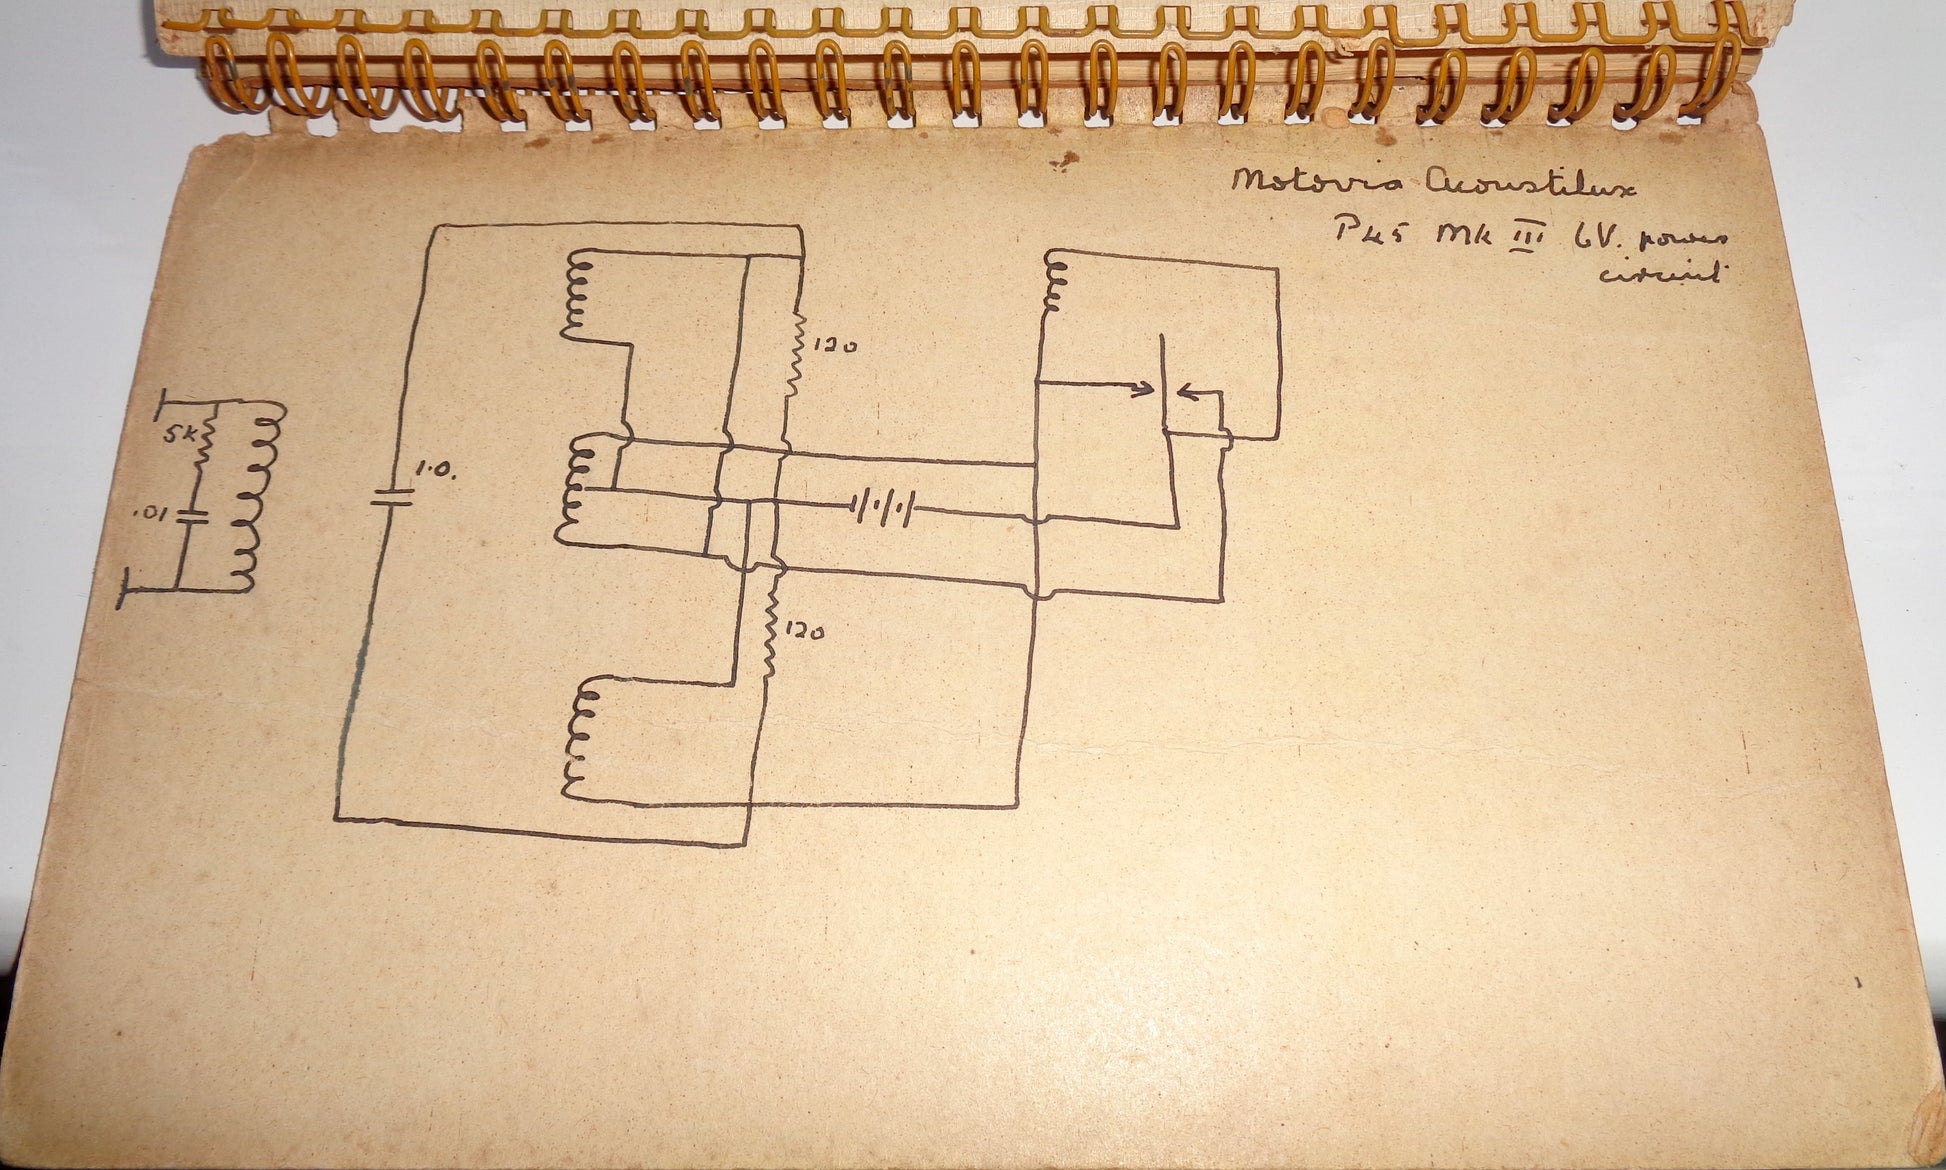 Motovia Acoustilux
P45 Mk III 6V. power
circuit
120
5k
1.0.
.01
120